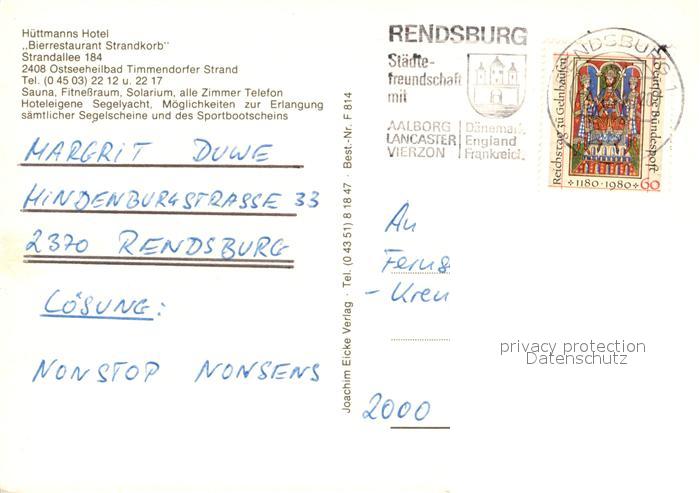 Hüttmanns Hotel
„Bierrestaurant Strandkorb"
Strandallee 184
2408 Ostseeheilbad Timmendorfer Strand
Tel. (0 45 03) 22 12 u. 22 17
Sauna, Fitneßraum, Solarium, alle Zimmer Telefon
Hoteleigene Segelyacht, Möglichkeiten zur Erlangung
sämtlicher Segelscheine und des Sportbootscheins
MARGRIT DUWE
HINDENBURGSTRASSE 33
2370 RENDSBURG
LÖSUNG:
NONSTOP NONSENS
Joachim Eicke Verlag · Tel. (0 43 51) 8 18 47 · Best.-Nr. F 814
RENDSBURG
Städte-
freundschaft
mit
AALBORG Dänemark
LANCASTER England
VIERZON Frankreich
RENDSBURG 1
Reichstag zu Gelnhausen
Deutsche Bundespost
1180-1980 60
An
Ferns
- Kreu
2000
privacy protection
Datenschutz